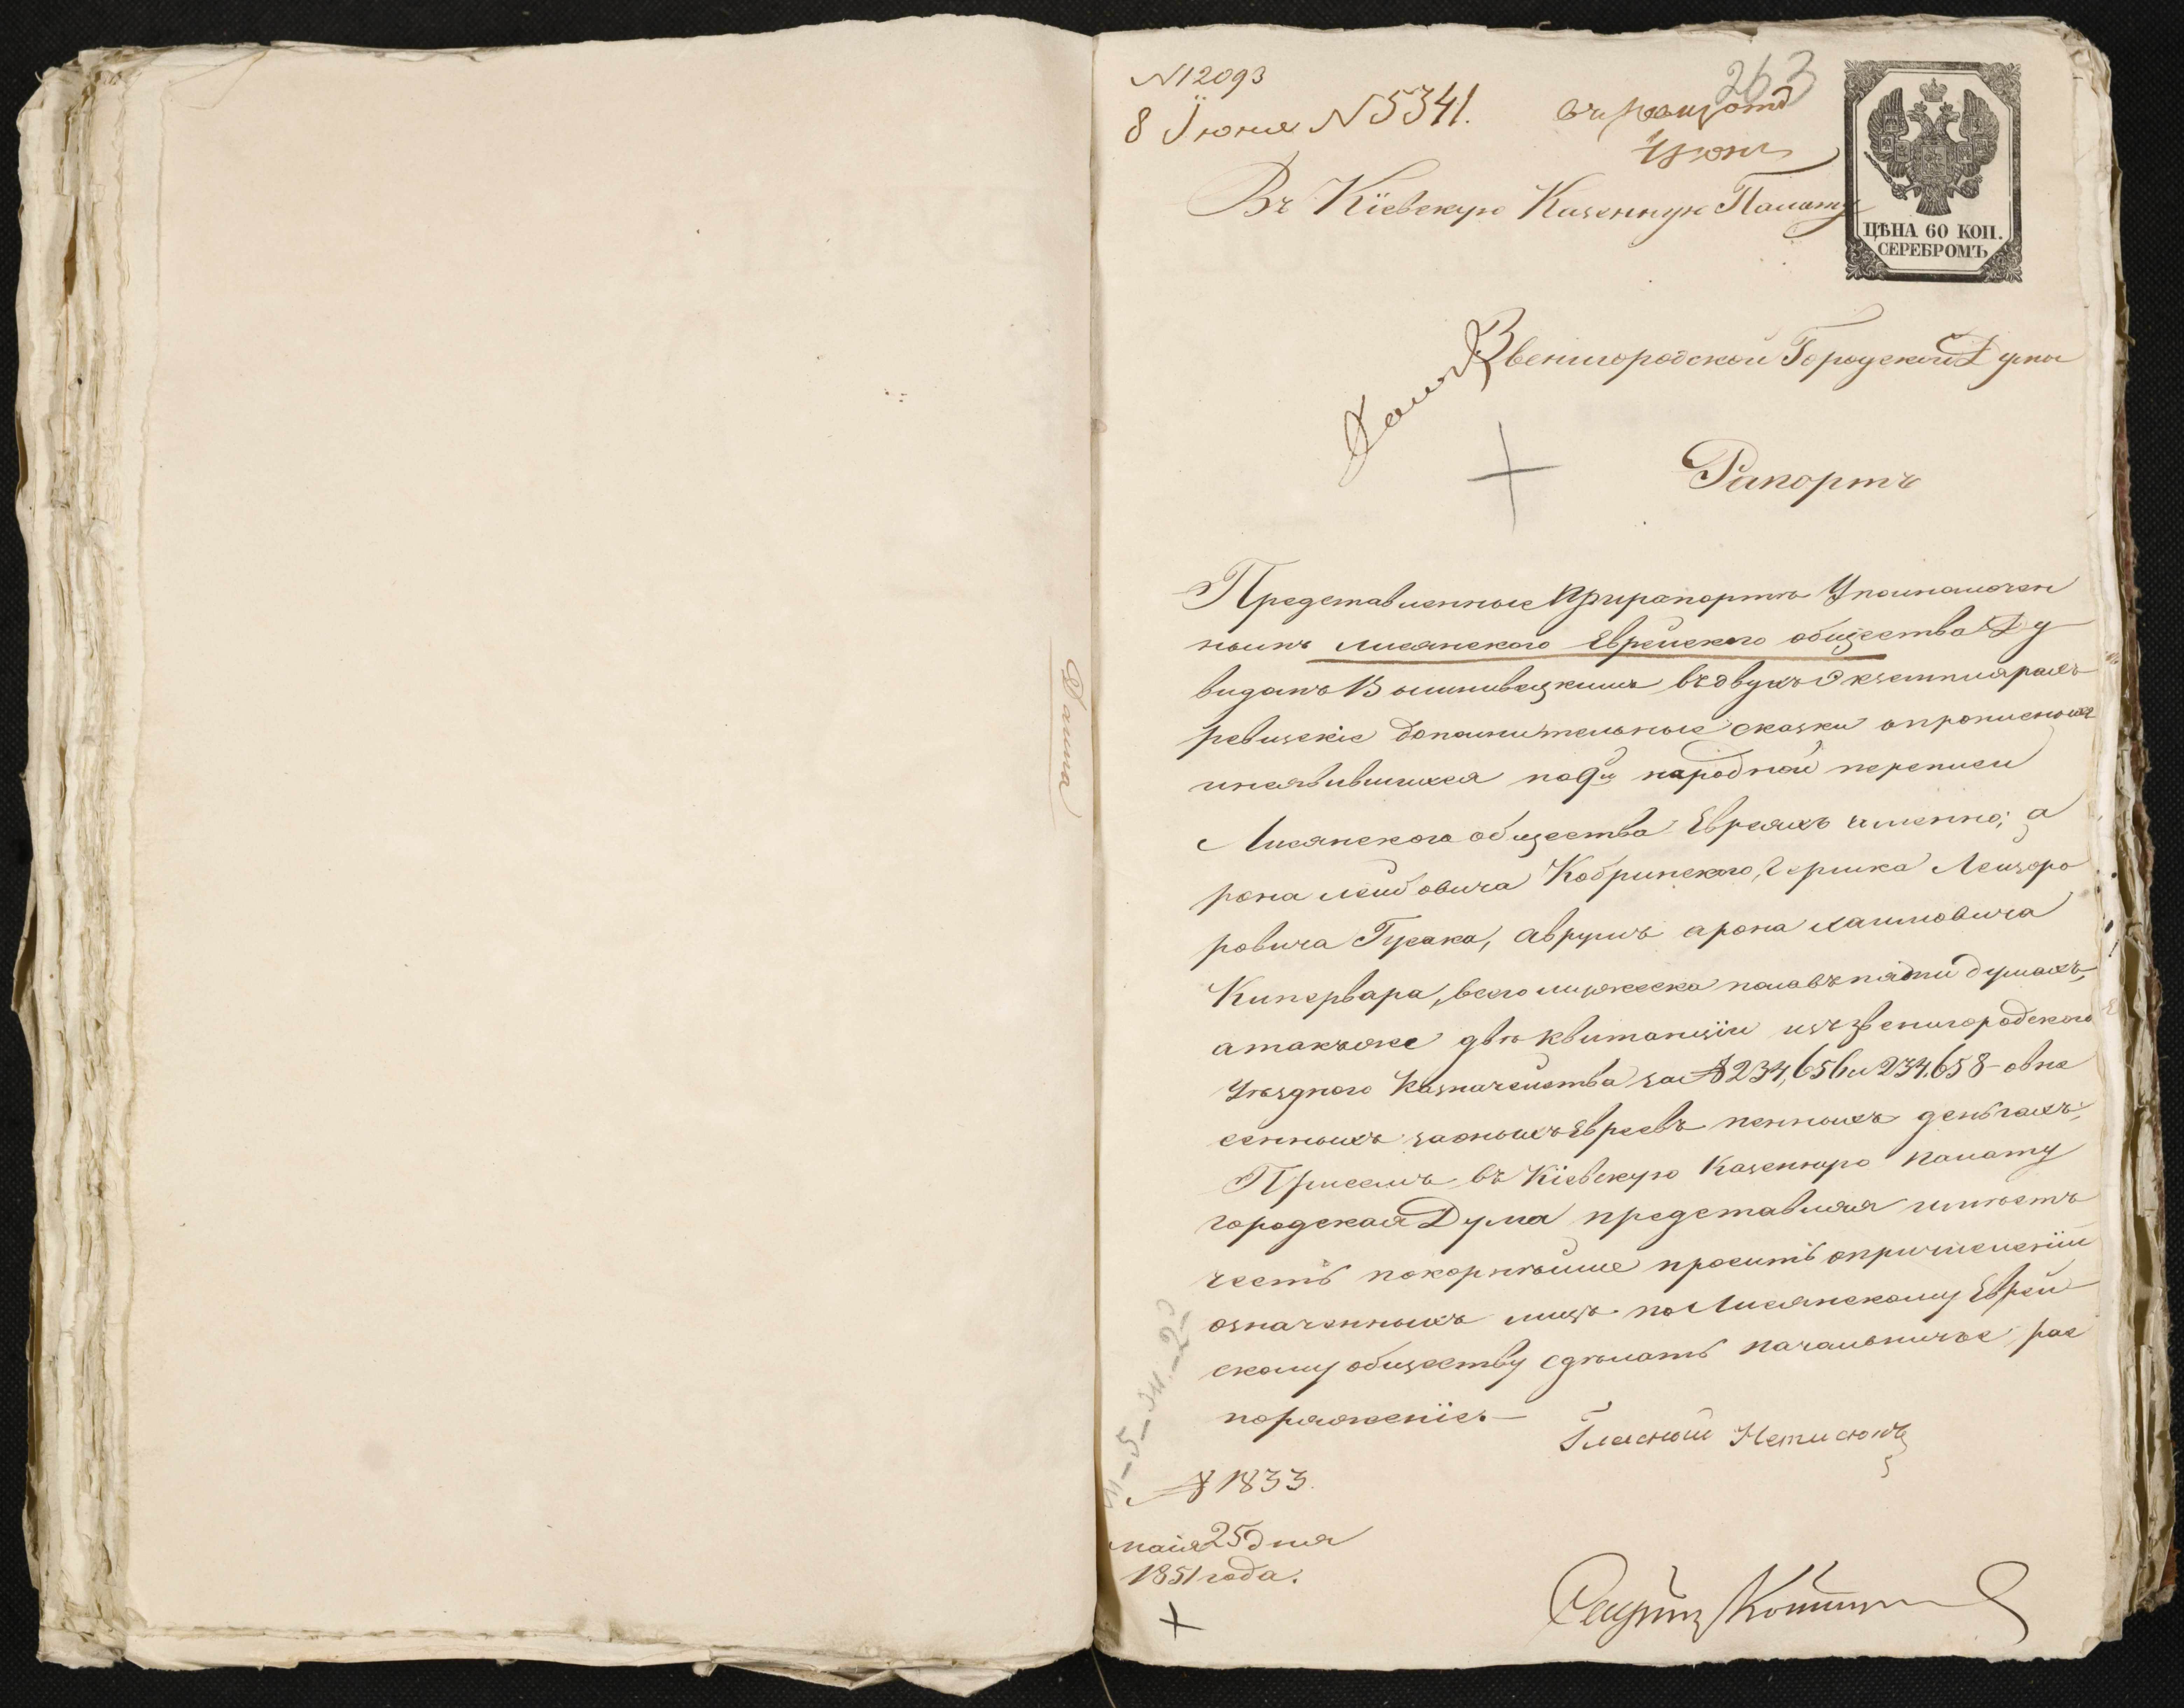 Дата
N 12093
8 Іюня N 5341.
263
Іюня
Въ Кіевскую Казенную Палату
ЦѢНА 60 КОП.
СЕРЕБРОМЪ
Звенигородской Городской Думы
Рапортъ
Представленные при рапортѣ Уполномочен
нымъ Лисянского Еврейского общества Ду
видомъ Вышнивецкимъ въ двухъ Экземплярахъ
ревизскіе дополнительные сказки о прописныхъ
и неявившихся по 9й народной переписи
Лисянского общества Евреяхъ именно; а
рона Лейбовича Кобринского, Гершка Лейзоро
ровича Гусака, Аврумъ арона Хаимовича
Кипервара, всего мужеска пола въ пяти душахъ,
а также двѣ квитанціи изъ Звенигородского
Уѣздного Казначейства за № 234,656 и 234,658 - о вне
сенныхъ за оныхъ Евреевъ пенныхъ деньгахъ,
При семъ въ Кіевскую Казенную Палату
городская Дума представляя имѣетъ
честь покорнѣйше просить о причисленіи
означенныхъ лицъ по Лисянскому Еврей
скому обществу сдѣлать начальничье рас
поряженіе. —
Гласный
№ 1833.
маія 25 дня
1851 года.